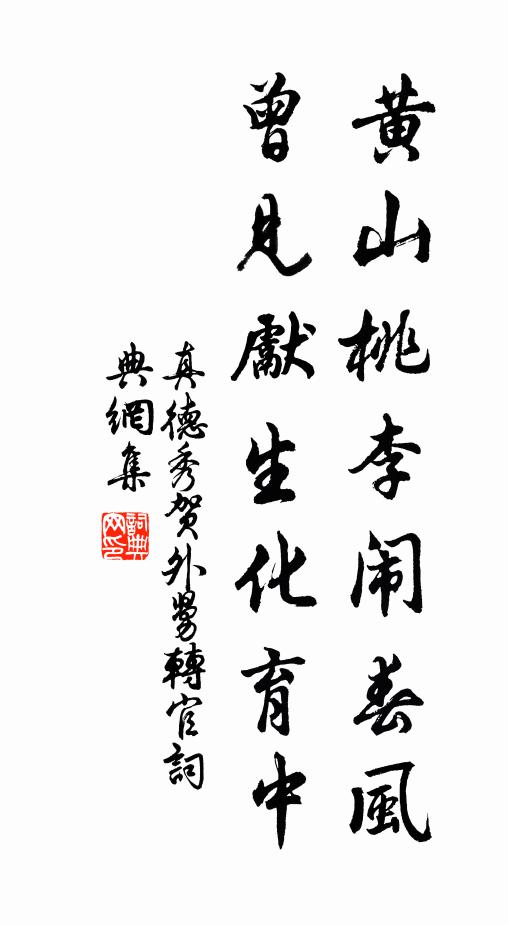 黄山桃李闹春風
曾見獻生化育中
真德秀贺外舅轉官詞
典網集
詞典网印